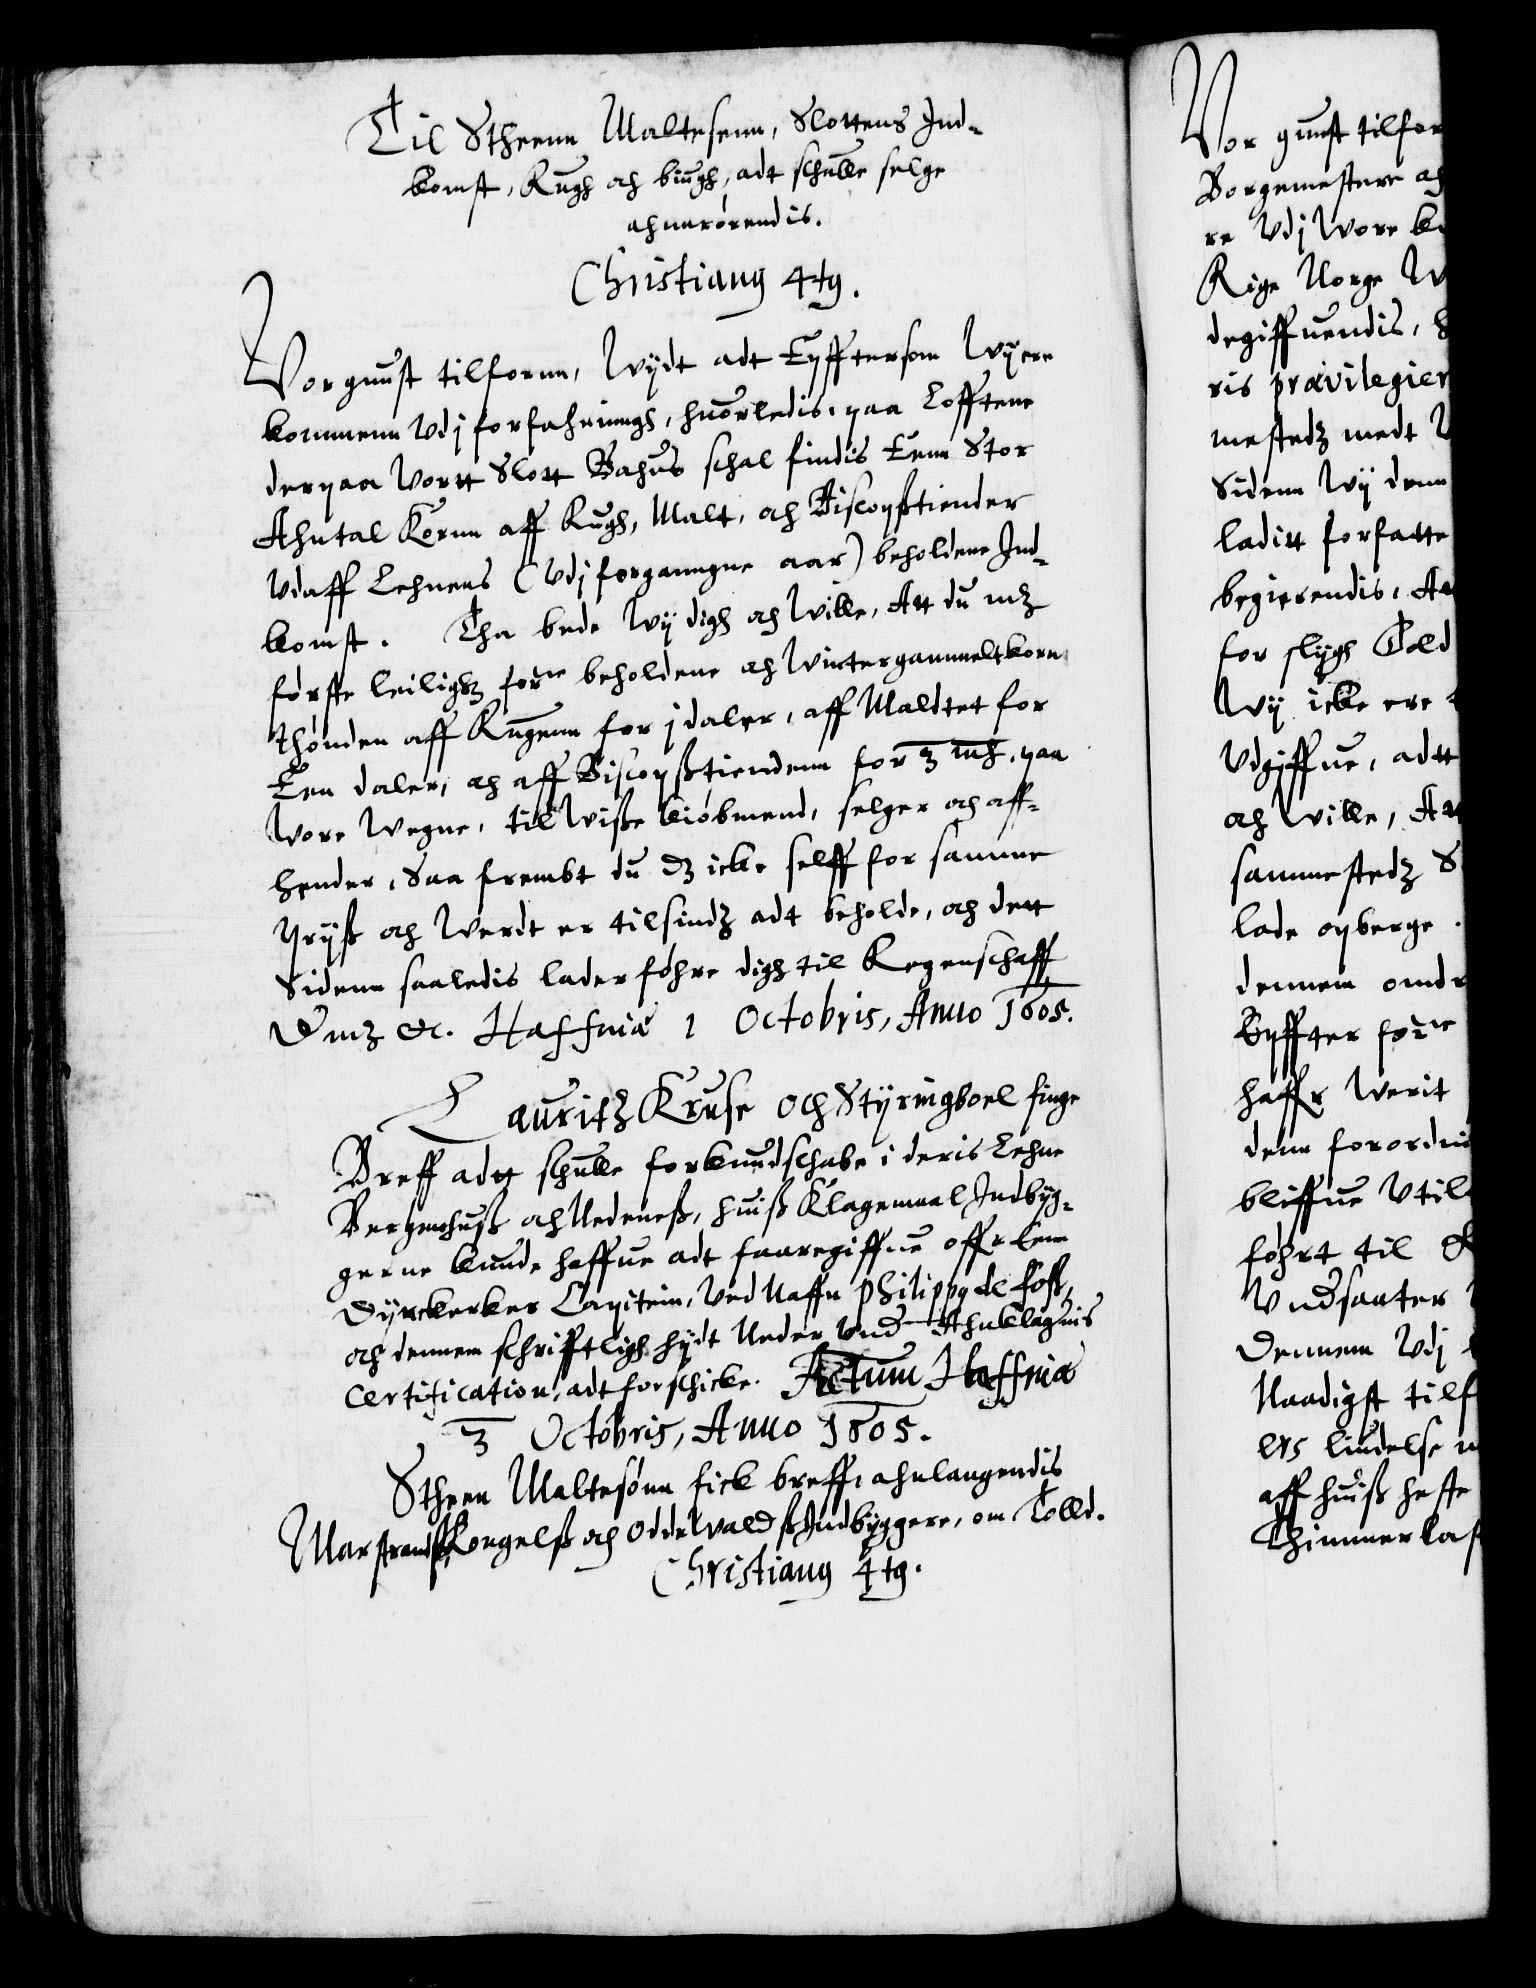 Til Stheenn Maltesenn, Slottens Ind-
komst, Rugh och biugh, adt schulle selge
ahnnrørendis.
Christianus 4tus.
Vor gunst tilfornn, Wydt adt Eyfftersom Wy ere
kommenn Udj forfahringh, huorledis paa Lofftene
derpaa Vortt Slott Bahus schal findis Eenn Stor
Ahntal Kornn aff Rugh, Malt, och Biscopstiender
Udaff Lehnens (Udj forganngne aar) beholdene Ind-
komst. Tha bede Wy digh och Wille, Att du mz
første leilighz forne beholdene och Wintergammelt korn
thønden aff Rugenn for j daler, aff Maldtet for
Een daler, och aff Biscopsstiendenn for 3 mk. paa
Wore Wegne, til Wisse kiøbmend, selger och aff-
hender, Saa frembt du dz icke self for samme
Pryss och Werdt er tilsindz adt beholde, och dett
Sidenn saaledis lader føhre digh til Regenschaff
Dmz &c. Haffniæ 1 Octobris, Anno 1605.
Lauritz Kruse och Styringboel finge
Breff adtt schulle forkundschabe i deris Lehne
Bergenhuss och Nedeness, huiss Klagemaal Indbyg-
gerne kunde haffue adt faaregiffue offr Een
Dynckerker Capitein, Ved Naffn Philippus de Foss,
och dennem schrifftligh hydt Neder Und Ahnklaguis
certification, adt forschicke. Actum Haffniæ
3 Octobris, Anno 1605.
Stheen Maltesønn fick breff, ahnlangendis
Marstrandss, Kongelss och Oddewaldss Indbyggere, om Tolld.
Christianus 4tus.
Vor gunst tilfor
Borgemestere och
re Udj Wore
Rige Norge W
degiffuendis,
ris prævilegier
mestedz medt
Sidenn Wy denn
laditt forfatte
begierendis, At
for slygh Told
Wy icke ere
Udgiffue, adtt
och Wille, At
sammestedz S
lade opberge
dennem
Eyffter forne
haffr Werit
denn forordni
bliffue Util
føhrt til
Undsaater
Dennem Udj
Naadigst tilf
lindelse
aff huiss heste
Thimmerlast